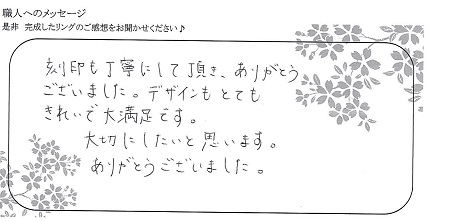 職人へのメッセージ
是非 完成したリングのご感想をお聞かせください♪
刻印も丁寧にして頂き、ありがとう
ございました。デザインもとても
きれいで大満足です。
大切にしたいと思います。
ありがとうございました。